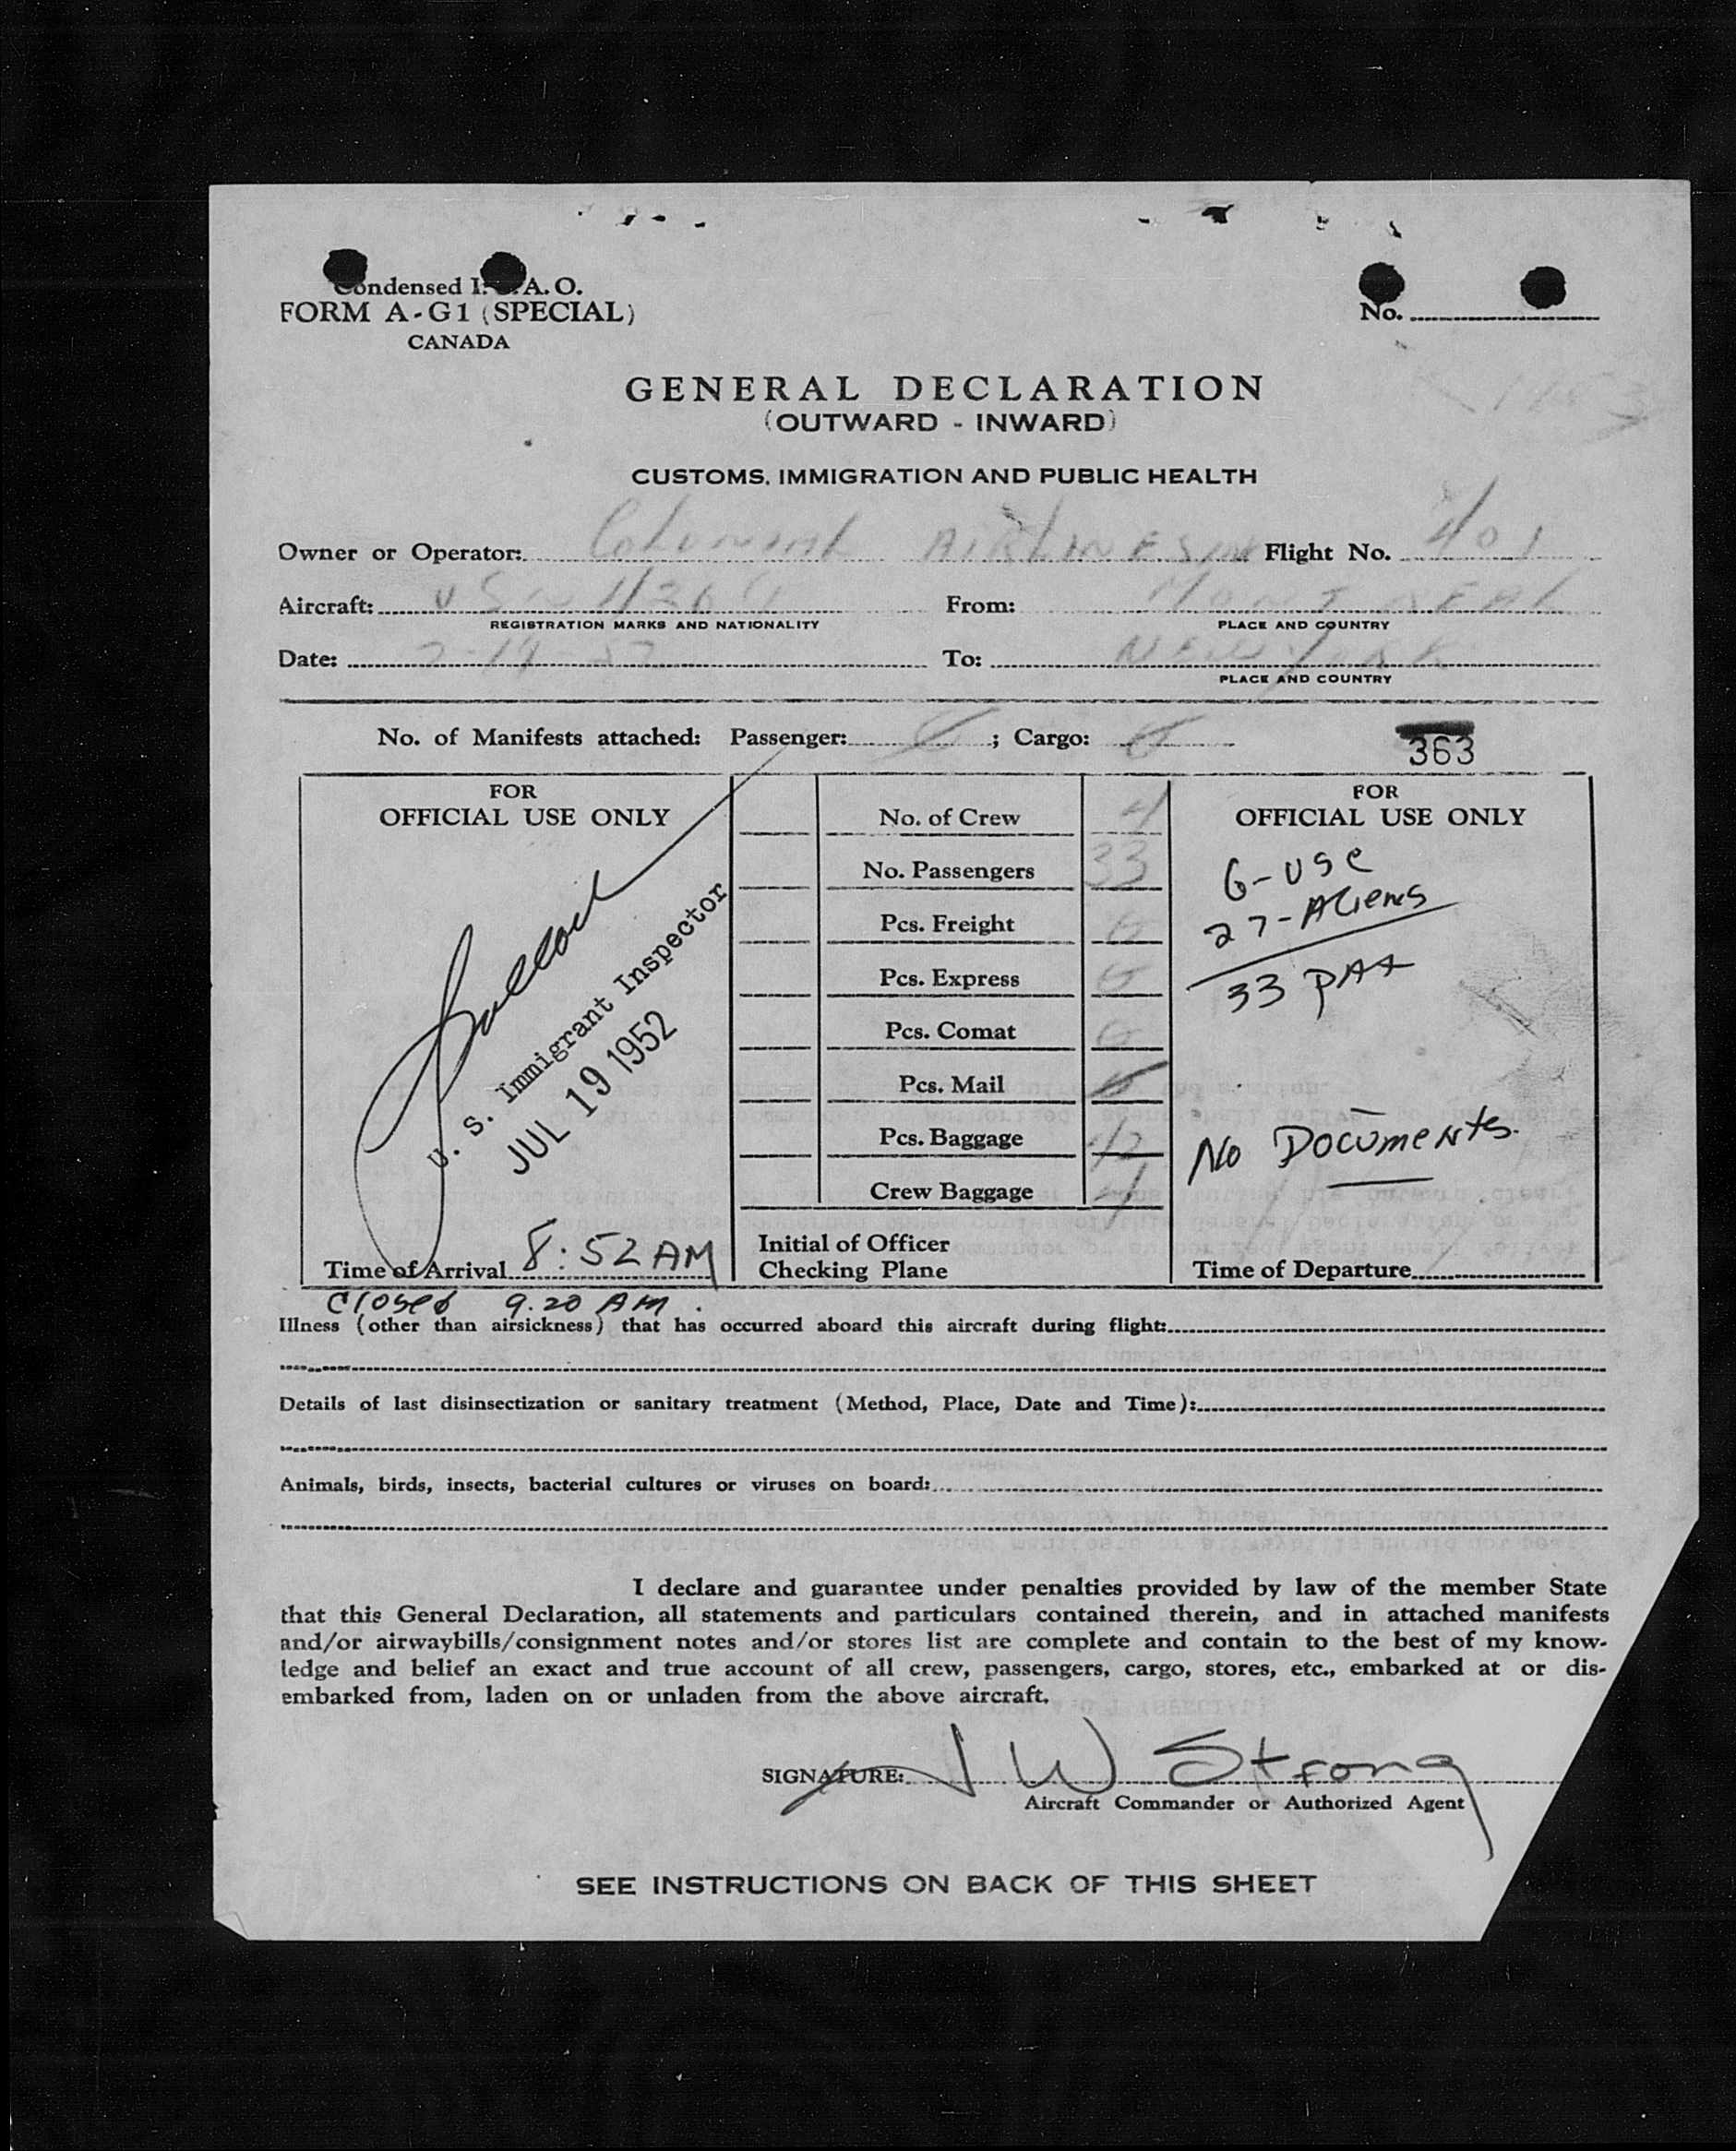 Condensed I. A. O.
FORM A-G1 (SPECIAL)
CANADA
No.
GENERAL DECLARATION
(OUTWARD - INWARD)
CUSTOMS, IMMIGRATION AND PUBLIC HEALTH
Owner or Operator: Colonial AIRLINES INC Flight No. 401
Aircraft: From: MONTREAL
REGISTRATION MARKS AND NATIONALITY PLACE AND COUNTRY
Date: 7-19-52 To: NEW YORK
PLACE AND COUNTRY
No. of Manifests attached: Passenger: ; Cargo: 0
363
FOR
OFFICIAL USE ONLY
U. S. Immigrant Inspector
JUL 19 1952
Time of Arrival 8:52 AM
Closed 9.20 AM.
No. of Crew 4
No. Passengers 33
Pcs. Freight 0
Pcs. Express 0
Pcs. Comat 0
Pcs. Mail 0
Pcs. Baggage 42
Crew Baggage 4
Initial of Officer
Checking Plane
FOR
OFFICIAL USE ONLY
6-USC
27-Aliens
33 PAX
No Documents.
Time of Departure
Illness (other than airsickness) that has occurred aboard this aircraft during flight:
Details of last disinsectization or sanitary treatment (Method, Place, Date and Time):
Animals, birds, insects, bacterial cultures or viruses on board:
I declare and guarantee under penalties provided by law of the member State
that this General Declaration, all statements and particulars contained therein, and in attached manifests
and/or airwaybills/consignment notes and/or stores list are complete and contain to the best of my know-
ledge and belief an exact and true account of all crew, passengers, cargo, stores, etc., embarked at or dis-
embarked from, laden on or unladen from the above aircraft.
SIGNATURE: J W Strong
Aircraft Commander or Authorized Agent
SEE INSTRUCTIONS ON BACK OF THIS SHEET